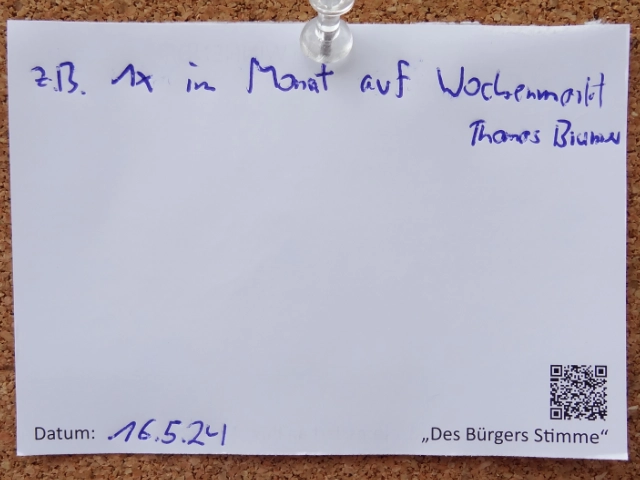 z.B. 1x im Monat auf Wochenmarkt
Thomas
Datum: 16.5.24
„Des Bürgers Stimme“